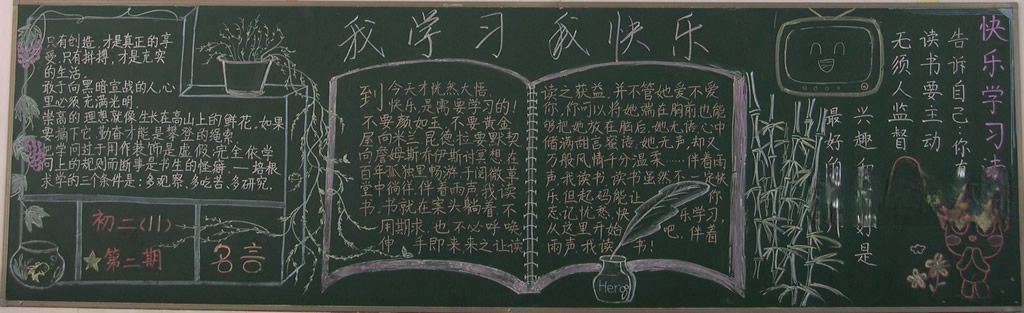 我学习 我快乐
只有创造,才是真正的享
受,只有拼搏,才是充实
的生活。
敢于向黑暗宣战的人,心
里必须充满光明。
崇高的理想就像生长在高山上的鲜花。如果
要摘下它,勤奋才能是攀登的绳索。
把学问过于用作装饰是虚假;完全依学
问上的规则而断事是书生的怪癖。——培根
求学的三个条件是:多观察、多吃苦、多研究。
初二(11)
第二期
名言
到今天才恍然大悟,
快乐是需要学习的!
不要颜如玉,不要黄金
屋,向米兰昆德拉要默契,
向詹姆斯乔伊斯付冥想,在
百年孤独里畅游,于阅微草
堂中徜徉,伴着雨声,我读
书。书就在案头躺着,不
用期求,也不必呼唤,
伸手即来,来之让读
读之获益,并不管她爱不爱
你,你可以将她端在胸前,也能
够把她放在脑后,她无语,心中
储满甜言蜜语,她无声,却又
万般风情千分温柔……伴着雨
声,我读书,读书虽然不一定快
乐,但起码能让你
忘记忧愁,快乐学习,
从这里开始吧,伴着
雨声,我读书!
Hero
快乐学习读
告诉自己:你有
读书要主动
无须人监督
兴趣和好是
最好的